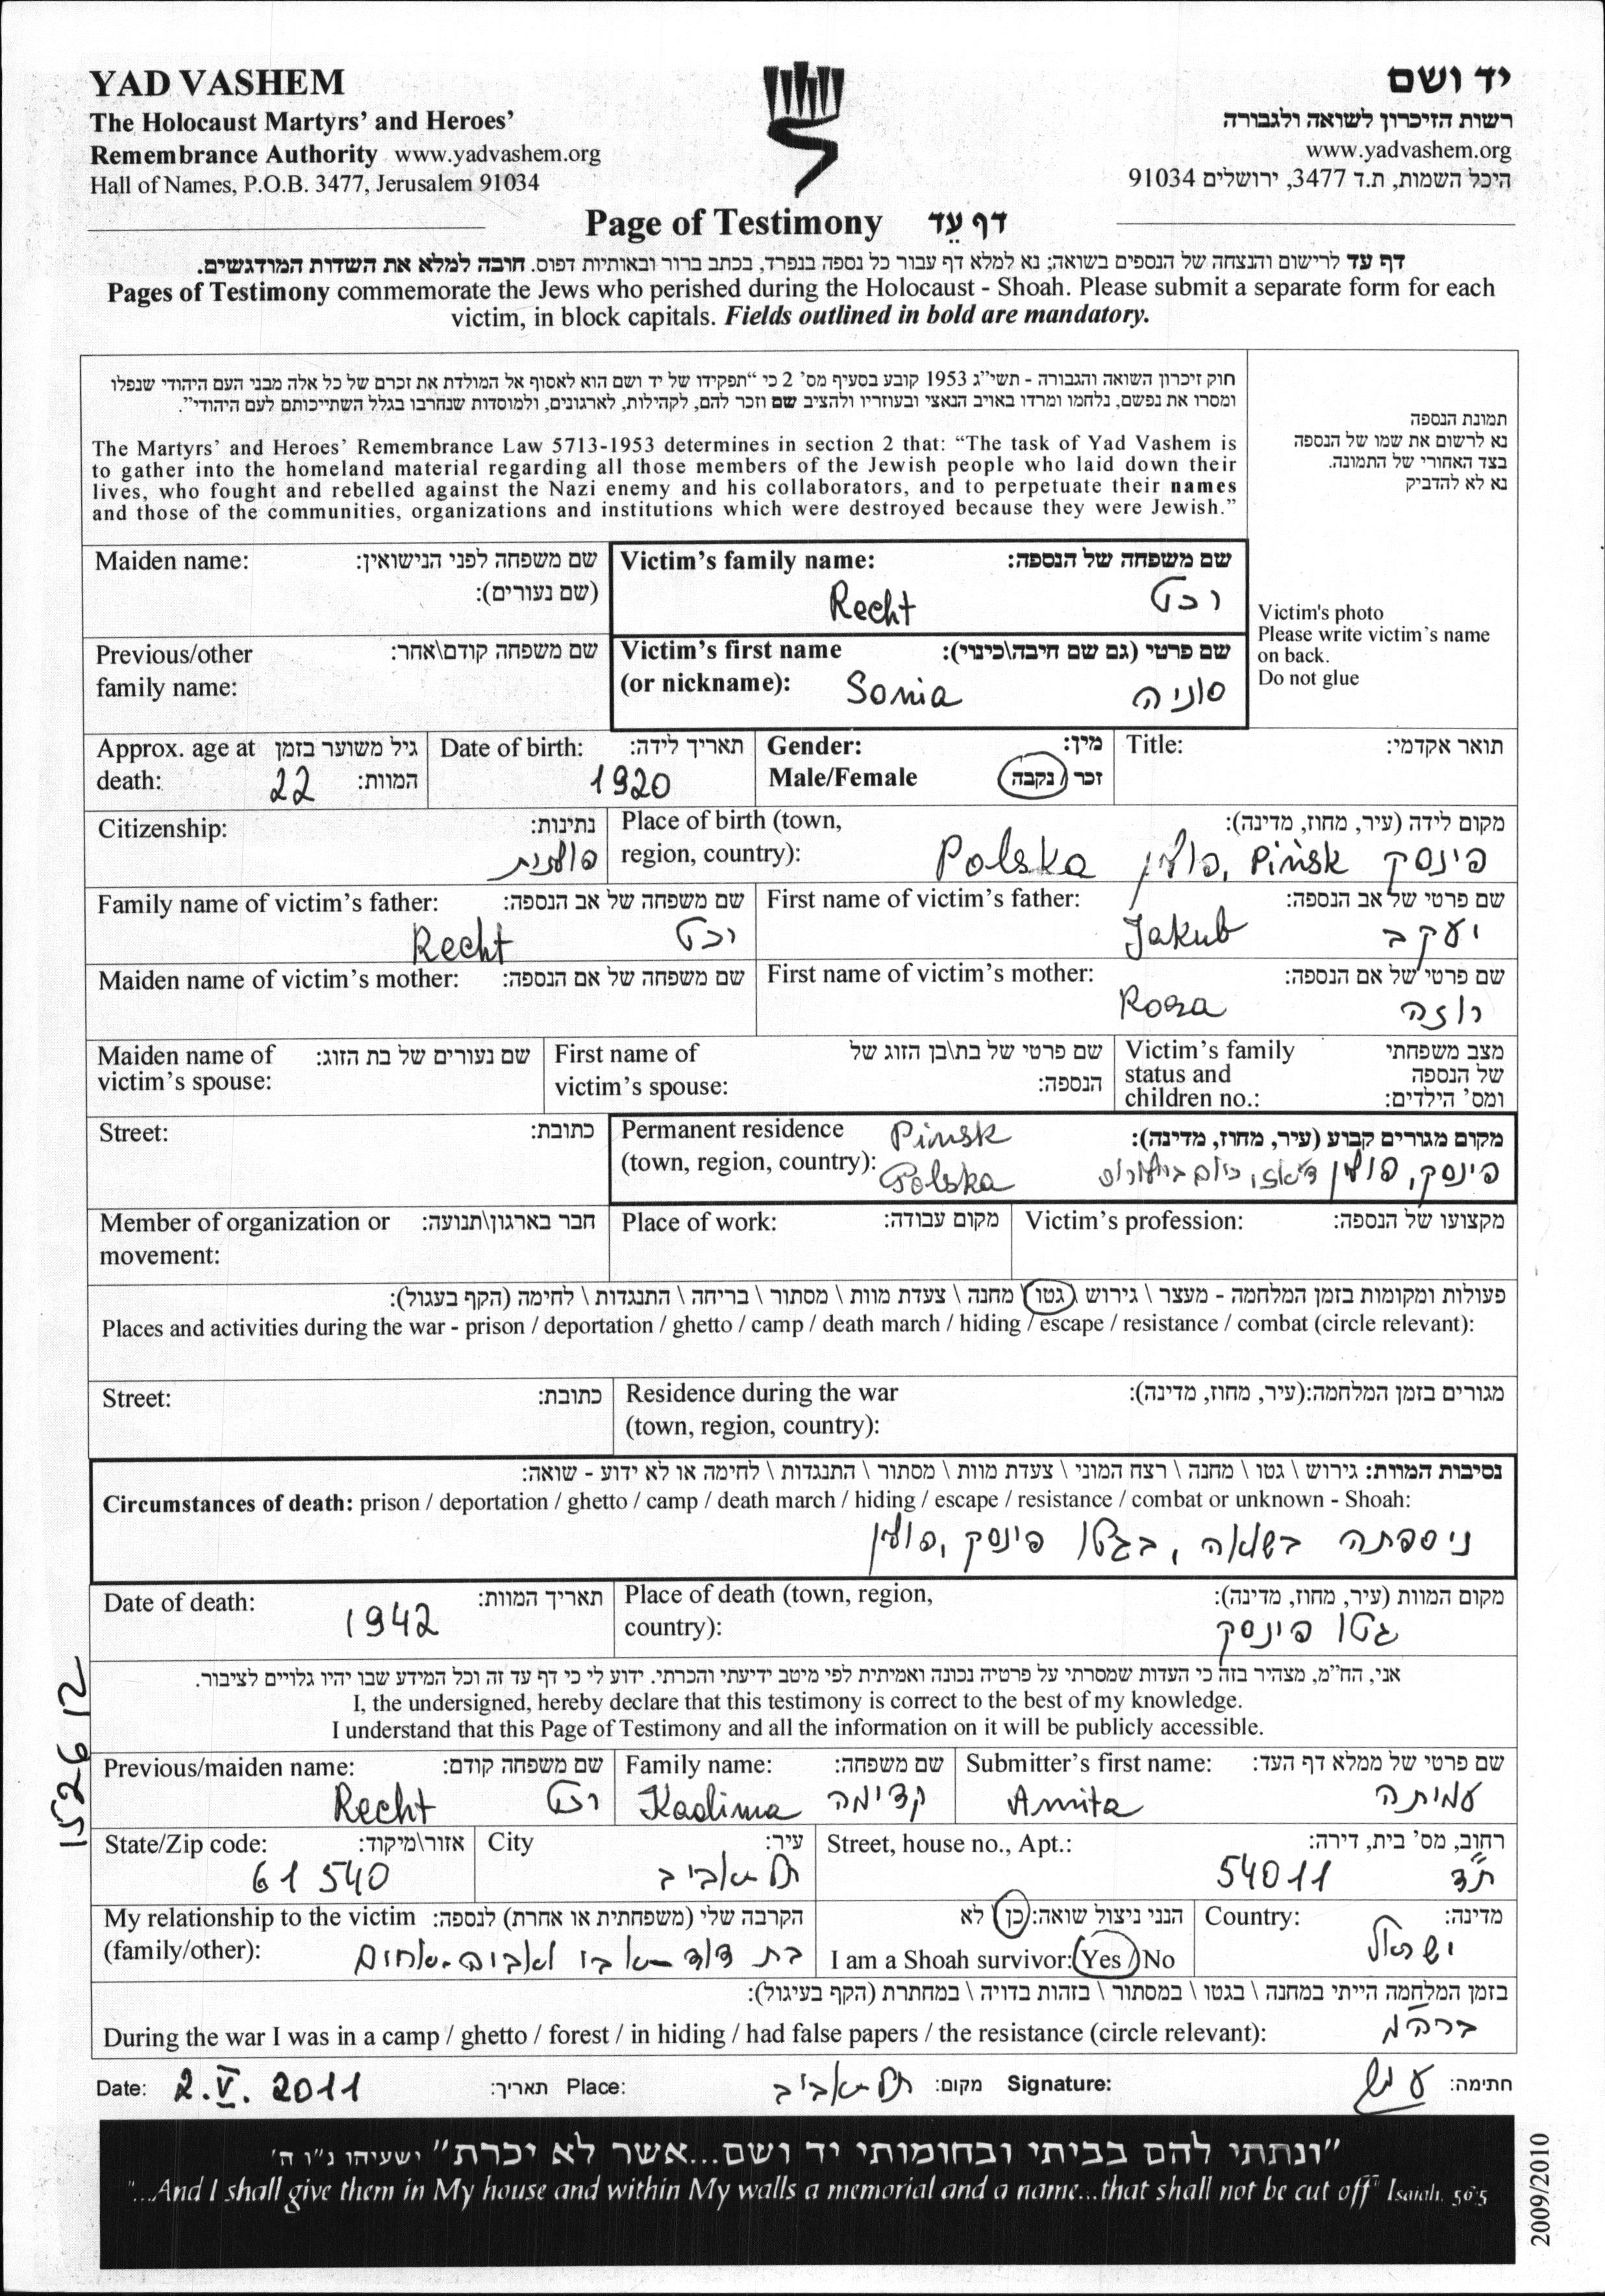 YAD VASHEM
The Holocaust Martyrs' and Heroes'
Remembrance Authority www.yadvashem.org
Hall of Names, P.O.B. 3477, Jerusalem 91034
יד ושם
רשות הזיכרון לשואה ולגבורה
www.yadvashem.org
היכל השמות, ת.ד 3477, ירושלים 91034
Page of Testimony דף עֵד
דף עד לרישום והנצחה של הנספים בשואה; נא למלא דף עבור כל נספה בנפרד, בכתב ברור ובאותיות דפוס. חובה למלא את השדות המודגשים.
Pages of Testimony commemorate the Jews who perished during the Holocaust - Shoah. Please submit a separate form for each
victim, in block capitals. Fields outlined in bold are mandatory.
חוק זיכרון השואה והגבורה - תשי"ג 1953 קובע בסעיף מס' 2 כי "תפקידו של יד ושם הוא לאסוף אל המולדת את זכרם של כל אלה מבני העם היהודי שנפלו
ומסרו את נפשם, נלחמו ומרדו באויב הנאצי ובעוזריו ולהציב שם וזכר להם, לקהילות, לארגונים, ולמוסדות שנחרבו בגלל השתייכותם לעם היהודי".
The Martyrs' and Heroes' Remembrance Law 5713-1953 determines in section 2 that: "The task of Yad Vashem is
to gather into the homeland material regarding all those members of the Jewish people who laid down their
lives, who fought and rebelled against the Nazi enemy and his collaborators, and to perpetuate their names
and those of the communities, organizations and institutions which were destroyed because they were Jewish."
תמונת הנספה
נא לרשום את שמו של הנספה
בצד האחורי של התמונה.
נא לא להדביק
Victim's photo
Please write victim's name
on back.
Do not glue
Maiden name: שם משפחה לפני הנישואין:
(שם נעורים):
Victim's family name: שם משפחה של הנספה:
Recht רכט
Previous/other שם משפחה קודם\אחר:
family name:
Victim's first name שם פרטי (גם שם חיבה\כינוי):
(or nickname): Sonia סוניה
Approx. age at גיל משוער בזמן
death: 22 המוות:
Date of birth: תאריך לידה:
1920
Gender: מין:
Male/Female זכר / נקבה
Title: תואר אקדמי:
Citizenship: נתינות:
פולנית
Place of birth (town, מקום לידה (עיר, מחוז, מדינה):
region, country): Polska פולין, Pińsk פינסק
Family name of victim's father: שם משפחה של אב הנספה:
Recht רכט
First name of victim's father: שם פרטי של אב הנספה:
Jakub יעקב
Maiden name of victim's mother: שם משפחה של אם הנספה:
First name of victim's mother: שם פרטי של אם הנספה:
Roza רוזה
Maiden name of שם נעורים של בת הזוג:
victim's spouse:
First name of שם פרטי של בת\בן הזוג של
victim's spouse: הנספה:
Victim's family מצב משפחתי
status and של הנספה
children no.: ומס' הילדים:
Street: כתובת:
Permanent residence Pinsk מקום מגורים קבוע (עיר, מחוז, מדינה):
(town, region, country): Polska פינסק, פולין דאז, כיום בילורוס
Member of organization or חבר בארגון\תנועה:
movement:
Place of work: מקום עבודה:
Victim's profession: מקצועו של הנספה:
פעולות ומקומות בזמן המלחמה - מעצר \ גירוש \ גטו \ מחנה \ צעדת מוות \ מסתור \ בריחה \ התנגדות \ לחימה (הקף בעגול):
Places and activities during the war - prison / deportation / ghetto / camp / death march / hiding / escape / resistance / combat (circle relevant):
Street: כתובת:
Residence during the war מגורים בזמן המלחמה:(עיר, מחוז, מדינה):
(town, region, country):
נסיבות המוות: גירוש \ גטו \ מחנה \ רצח המוני \ צעדת מוות \ מסתור \ התנגדות \ לחימה או לא ידוע - שואה:
Circumstances of death: prison / deportation / ghetto / camp / death march / hiding / escape / resistance / combat or unknown - Shoah:
ניספתה בשואה, בגטו פינסק, פולין
Date of death: תאריך המוות:
1942
Place of death (town, region, מקום המוות (עיר, מחוז, מדינה):
country): גטו פינסק
אני, הח"מ, מצהיר בזה כי העדות שמסרתי על פרטיה נכונה ואמיתית לפי מיטב ידיעתי והכרתי. ידוע לי כי דף עד זה וכל המידע שבו יהיו גלויים לציבור.
I, the undersigned, hereby declare that this testimony is correct to the best of my knowledge.
I understand that this Page of Testimony and all the information on it will be publicly accessible.
Previous/maiden name: שם משפחה קודם:
Recht רכט
Family name: שם משפחה:
Kadima קדימה
Submitter's first name: שם פרטי של ממלא דף העד:
Amita עמיתה
State/Zip code: אזור\מיקוד:
61540
City עיר:
תל-אביב
Street, house no., Apt.: רחוב, מס' בית, דירה:
54011 ת"ד
My relationship to the victim הקרבה שלי (משפחתית או אחרת) לנספה:
(family/other): בת דוד
הנני ניצול שואה: כן לא
I am a Shoah survivor: Yes / No
Country: מדינה:
ישראל
בזמן המלחמה הייתי במחנה \ בגטו \ במסתור \ בזהות בדויה \ במחתרת (הקף בעיגול):
During the war I was in a camp / ghetto / forest / in hiding / had false papers / the resistance (circle relevant):
Date: 2.V.2011 תאריך: Place: תל-אביב מקום: Signature: חתימה:
"ונתתי להם בביתי ובחומותי יד ושם...אשר לא יכרת" ישעיהו נ"ו ה'
"...And I shall give them in My house and within My walls a memorial and a name...that shall not be cut off" Isaiah, 56:5
152612
2009/2010